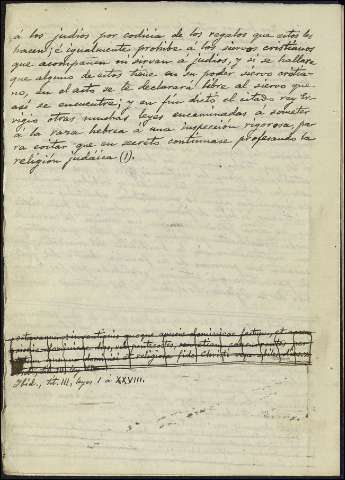 á los judios por codicia de los regalos que estos les
hacen; é igualmente prohibe á los siervos cristianos
que acompañen ni sirvan á judíos, y si se hallare
que alguno de estos tiene en su poder siervo cristia-
no, en el acto se le declarará libre al siervo que
así se encuentre; y en fin dictó el citado rey Er-
vigio otras muchas leyes encaminadas á someter
á la raza hebrea á una inspección rigorosa, pa-
ra evitar que en secreto continuase profesando la
religión judáica (1).
Ibid., tit. III, leyes I á XXVIII.